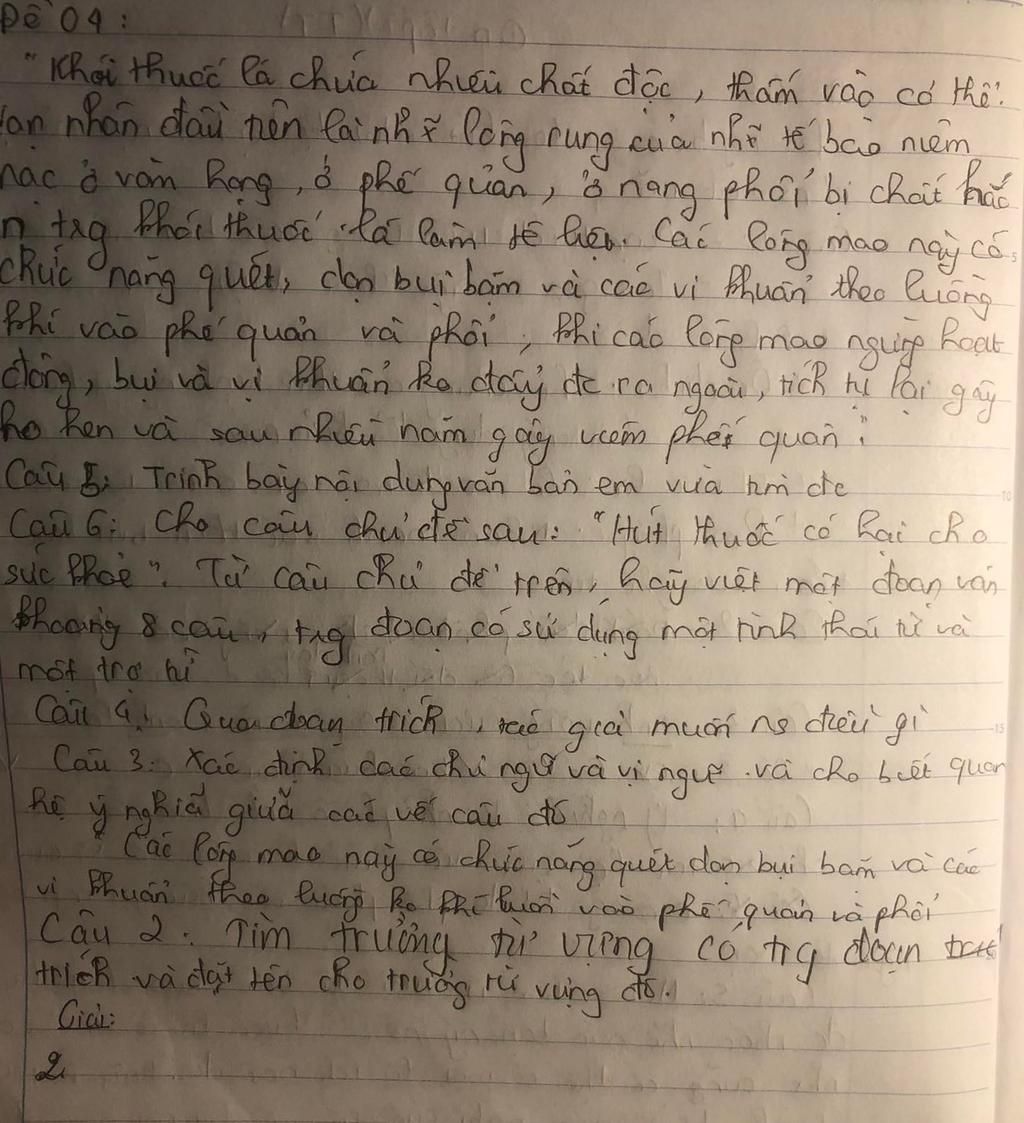 Đề 04:
"Khói thuốc lá chứa nhiều chất độc, thấm vào cơ thể.
nạn nhân đầu tiên là nhữ lông rung của nhữ tế bào niêm
mạc ở vòm họng, ở phế quản, ở nang phổi bị chất hắc
ín trg khói thuốc lá làm tê liệt. Các lông mao này có
chức năng quét, dọn bụi bặm và các vi khuẩn theo luồng
khí vào phế quản và phổi, khi các lông mao ngừng hoạt
động, bụi và vi khuẩn ko đẩy đc ra ngoài, tích tụ lại gây
ho hen và sau nhiều năm gây viêm phế quản"
Câu 5: Trình bày nội dung văn bản em vừa tìm đc
Câu 6: Cho câu chủ đề sau: "Hút thuốc có hại cho
sức khỏe". Từ câu chủ đề trên, hãy viết một đoạn văn
khoảng 8 câu, trg đoạn có sử dụng một tình thái từ và
một trợ từ
Câu 4: Qua đoạn trích, tác giả muốn ns điều gì
Câu 3: Xác định các chủ ngữ và vị ngữ và cho biết quan
hệ ý nghĩa giữa các vế câu đó
"Các lông mao này có chức năng quét dọn bụi bặm và các
vi khuẩn theo luồng ko khí vào phế quản và phổi
Câu 2: Tìm trường từ vựng có trg đoạn
trích và đặt tên cho trường từ vựng đó.
Giải:
2